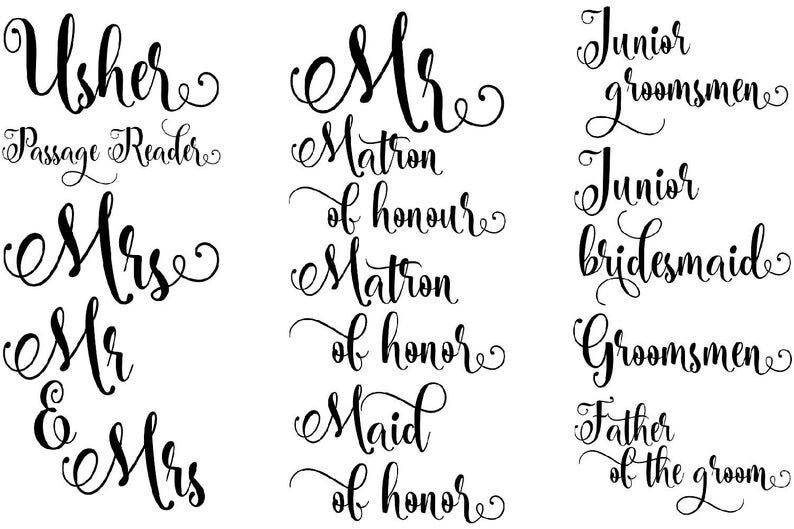 Usher
Passage Reader
Mrs
Mr
&
Mrs
Mr
Matron
of honour
Matron
of honor
Maid
of honor
Junior
groomsmen
Junior
bridesmaid
Groomsmen
Father
of the groom